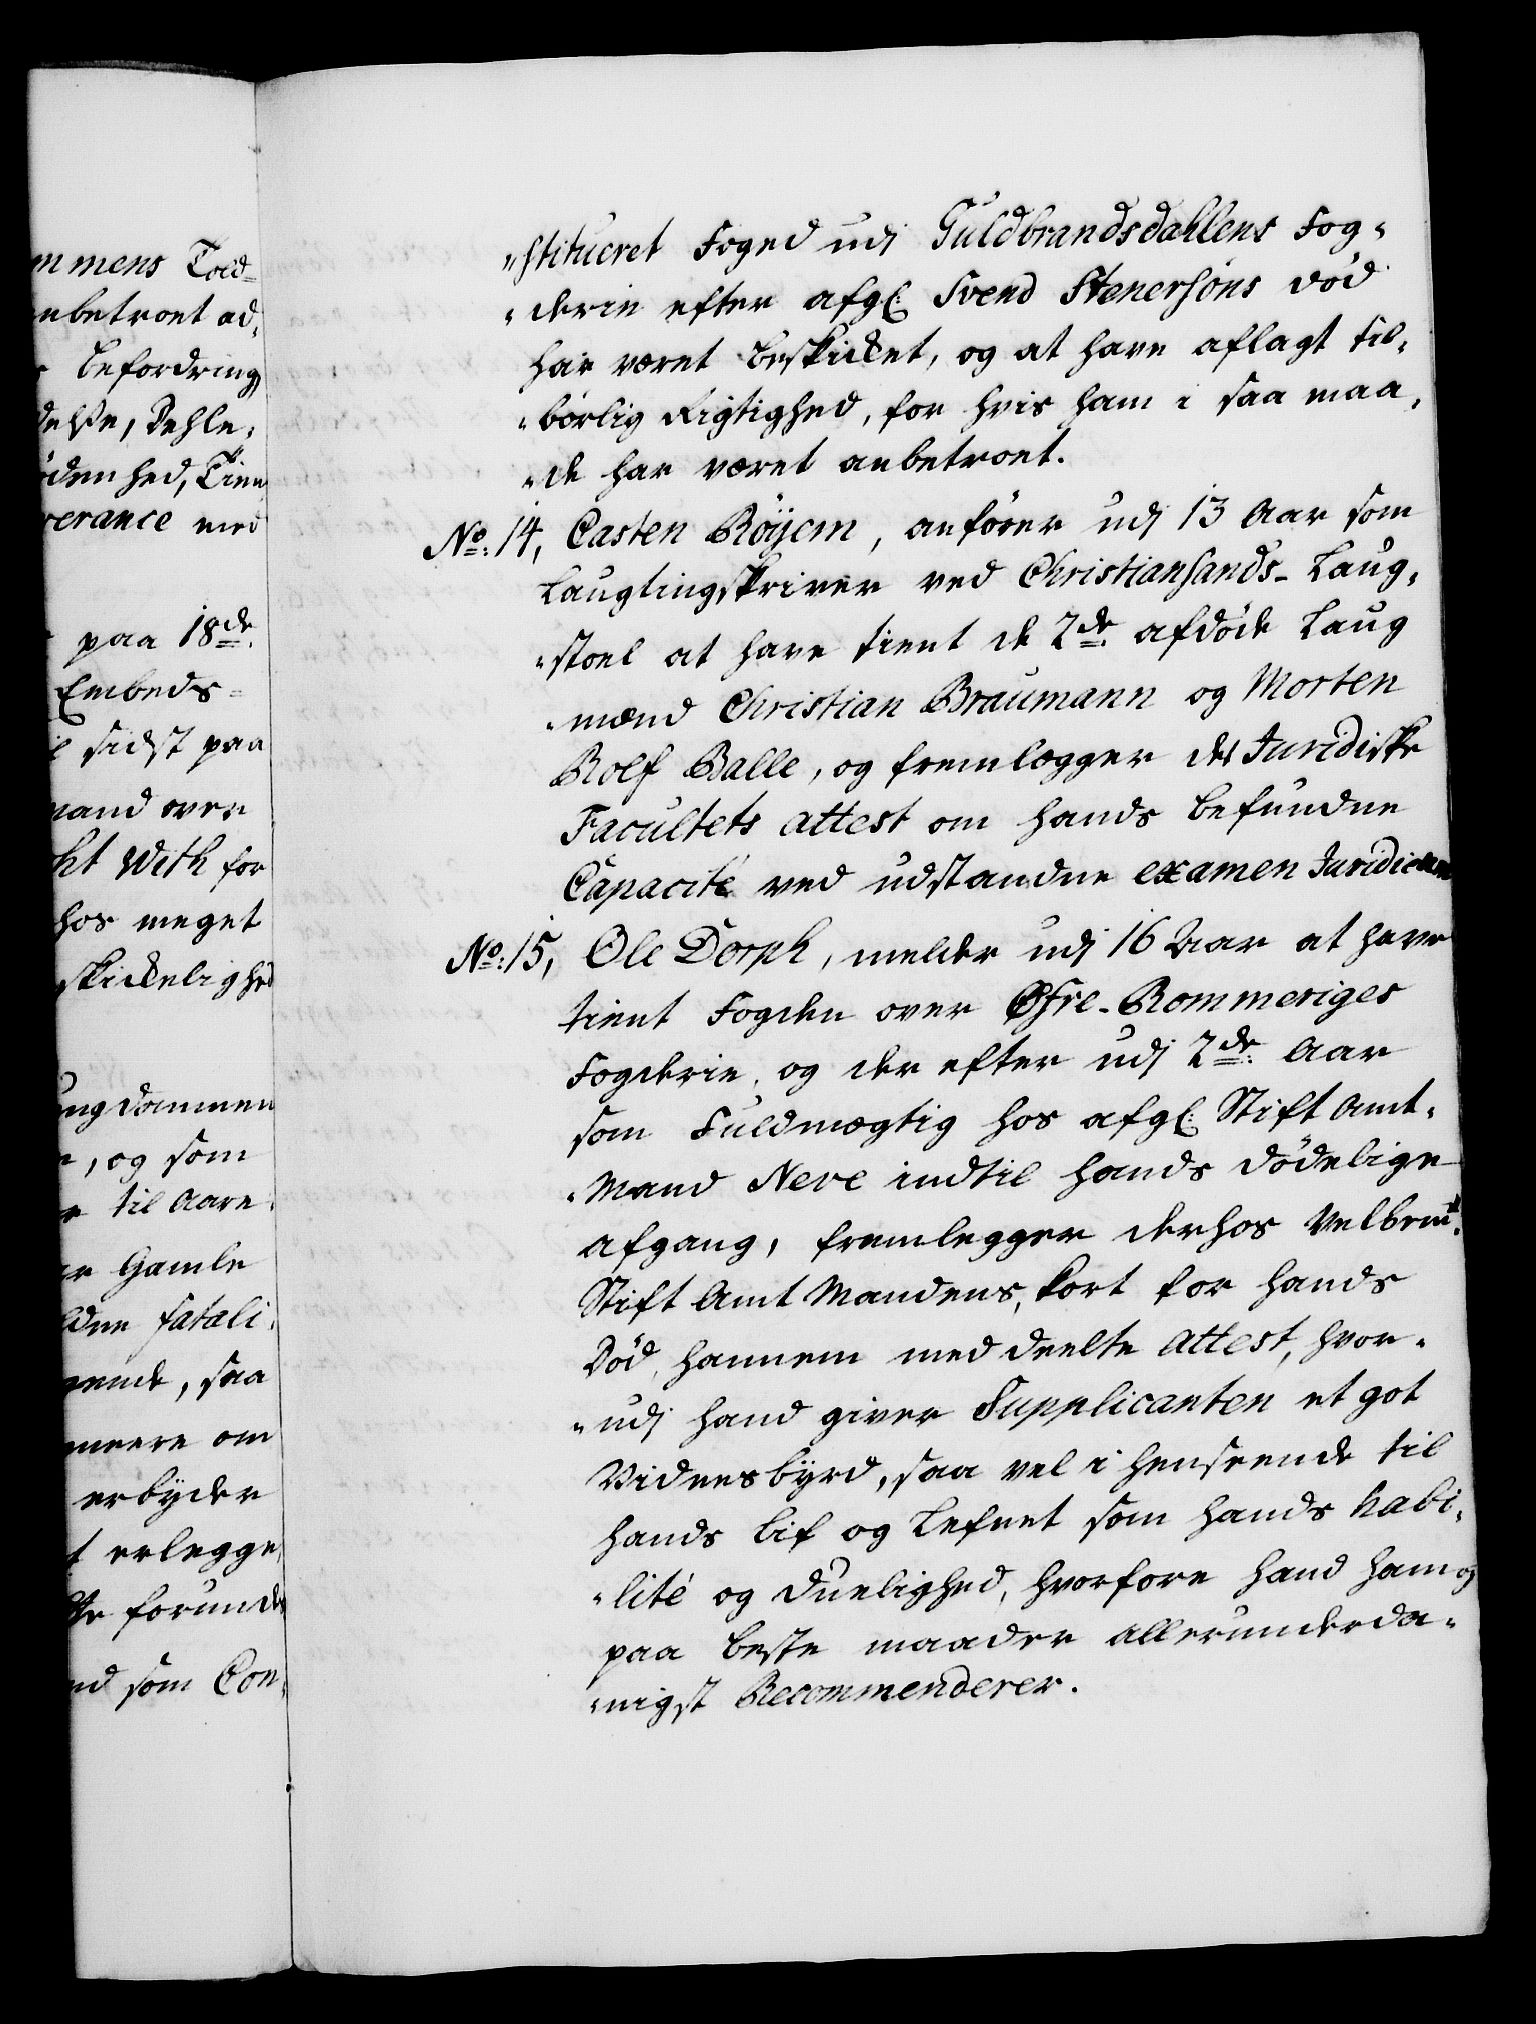 mmens Told-
nbetroet ad,
befordring
delse, Dehle,
ödenhed, Tien
verance med
paa 18de
Embeds-
sidst paa
mand over
cht With for
hos meget
skickelighed
ungdommen
, og som
til Aare
Gamle
fatali,
ende, saa
meere om
erbyder
t erlegge
forunde
nd som Con,
"stitueret Foged udj Guldbrandsdahlens Fog-
"derie efter afgl: Svend Stenersöns död
har været beskicket, og at have aflagt til-
"börlig Rigtighed, for hvis ham i saa maa,
"de har været anbetroet.
No: 14, Casten Röyem, anförer udj 13 Aar som
Laugtingskriver ved Christiansands- Laug,
"stoel at have tient de 2de afdöde Laug
"mænd Christian Braumann og Morten
Rolf Balle, og fremlægger det Juridiske
Facultets attest om hands befundne
Capacité ved udstandne examen Juridicum
No: 15, Ole Dorph, melder udj 16 Aar at have
tient Fogden over Øfre-Rommeriges
Fogderie, og der efter udj 2de: Aar
som Fuldmægtig hos afgl: Stift Amt-
"Mand Neve indtil hands dödelige
afgang, fremlegger derhos Velbemte:
Stift Amt Mandens, kort for hands
Död, hannem meddeelte Attest, hvor-
"udj hand giver Supplicanten et got
Vidnesbyrd, saa vel i henseende til
hands Lif og Lefnet som hands habi,
"lité og Duelighed, hvorfore hand ham og
paa beste maader allerunderda-
"nigst Recommenderer.